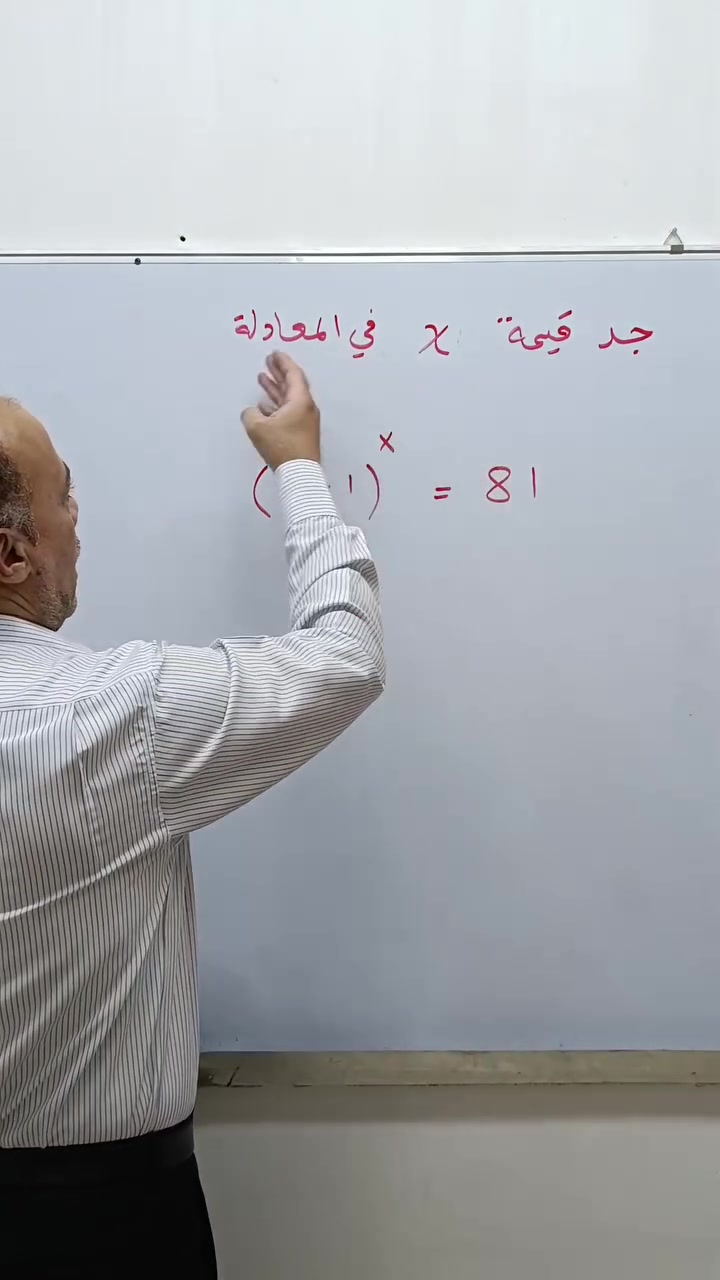 جد قيمة x في المعادلة
( 1)^x = 81